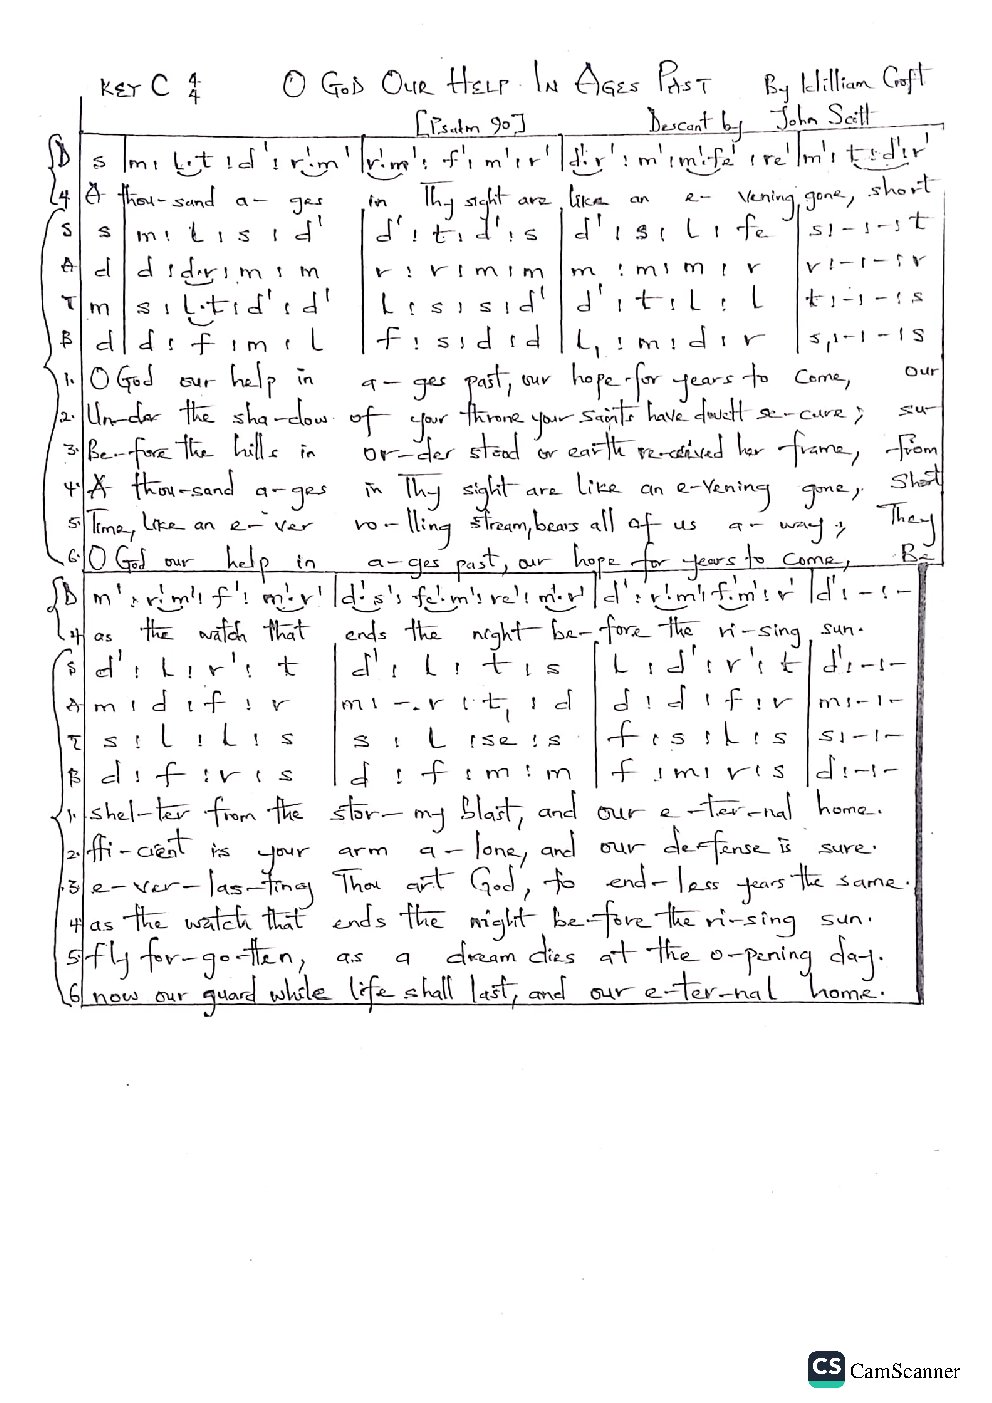 KEY C 4/4 O GOD OUR HELP IN AGES PAST By William Croft
[Psalm 90] Descant by John Scott
D s |m : l.t : d' : r'.m' |r'.m' : f' : m' : r' |d'.r' : m' : m'.fe' : re' |m' : t : d'.r'
4. A thou-sand a-ges in Thy sight are like an e-vening gone, short
S s m : l : s : d' d' : t : d' : s d' : s : l : fe s : - : - : t
A d d : d.r : m : m r : r : m : m m : m : m : r r : - : - : r
T m s : l.t : d' : d' l : s : s : d' d' : t : l : l t : - : - : s
B d d : f : m : l f : s : d : d l, : m : d : r s, : - : - : s
1. O God our help in a-ges past, our hope for years to come, our
2. Un-der the sha-dow of your throne your saints have dwelt se-cure; su-
3. Be-fore the hills in or-der stood or earth re-ceived her frame, from
4. A thou-sand a-ges in Thy sight are like an e-vening gone, Short
5. Time, like an e-ver ro-lling stream, bears all of us a-way; They
6. O God our help in a-ges past, our hope for years to come, Be
D m' : r'.m' : f' : m'.r' |d'.s' : fe'.m' : re' : m'.r' |d' : r'.m' : f'.m' : r' |d' : - : -
4 as the watch that ends the night be-fore the ri-sing sun.
S d' : l : r' : t d' : l : t : s l : d' : r' : t d' : - : -
A m : d : f : r m : -.r : t, : d d : d : f : r m : - : -
T s : l : l : s s : l : se : s f : s : l : s s : - : -
B d : f : r : s d : f : m : m f : m : r : s d : - : -
1. shel-ter from the stor-my blast, and our e-ter-nal home.
2. ffi-cient is your arm a-lone, and our de-fense is sure.
3 e-ver-las-ting Thou art God, to end-less years the same.
4 as the watch that ends the night be-fore the ri-sing sun.
5 fly for-go-tten, as a dream dies at the o-pening day.
6 now our guard while life shall last, and our e-ter-nal home.
CS CamScanner